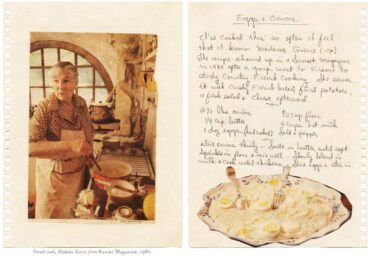 Eggs & Onions
I've cooked this so often I feel
that I know Madame Guere
The recipe showed up in a Sunset Magazine
in 1980 after a group went to France to
study Country French Cooking. She serves
it with Crusty French bread, fried potatoes,
a fresh salad & Cheese afterward
2½ lbs onions
½ cup flour
¼ cup butter
cups hot milk
1 doz eggs (hardcooked)
Salt & pepper
Slice onions thinly - Sauté in butter until soft.
Sprinkle in flour & mix well - Slowly blend in
milk & cook until thickens - Slice eggs & stir in.
French cook, Madame Guere, from Sunset Magazine, 1980.